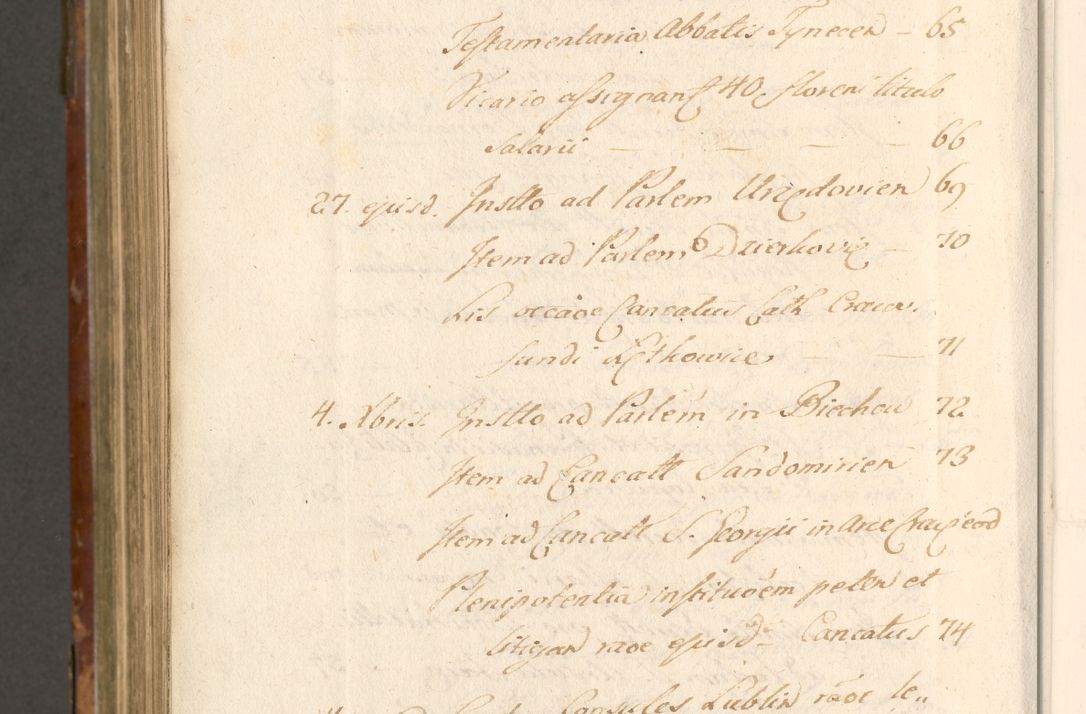 Testamentaria Abbatis Tynecen – 65
Vicario assignant 40. floren titulo
Salarii – – – – 66
27. ejusd. Instto ad Parlem Urzędovien 69
Item ad Parlem Dzierkoviẽ – 70
Lis occaõe Cancatus Cath Cracov.
fundi Lętkowice – – 71
4. Xbris. Instto ad Parlem in Biechow 72
Item ad Cancatt Sandomirien 73
Item ad Cancatt S. Georgii in Arce Crac eod
Plenipotentia institutõem peten et
litigan raõe ejusd – Cancatus 74
Consules Lublin rãoe le„